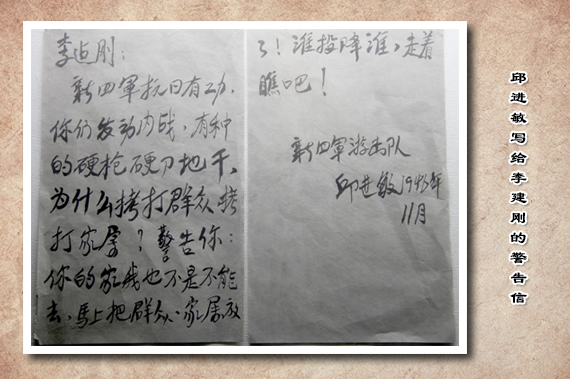 李迠刚:
新四軍抗日有功.
你们发动内战,有种
的硬枪硬刀地干,
为什么拷打群众拷
打家属?警告你:
你的家我也不是不能
去,馬上把群众、家属放
了!谁投降谁,走着
瞧吧!
新四軍游击队
邱进敏1945年
11月
邱进敏写给李建刚的警告信